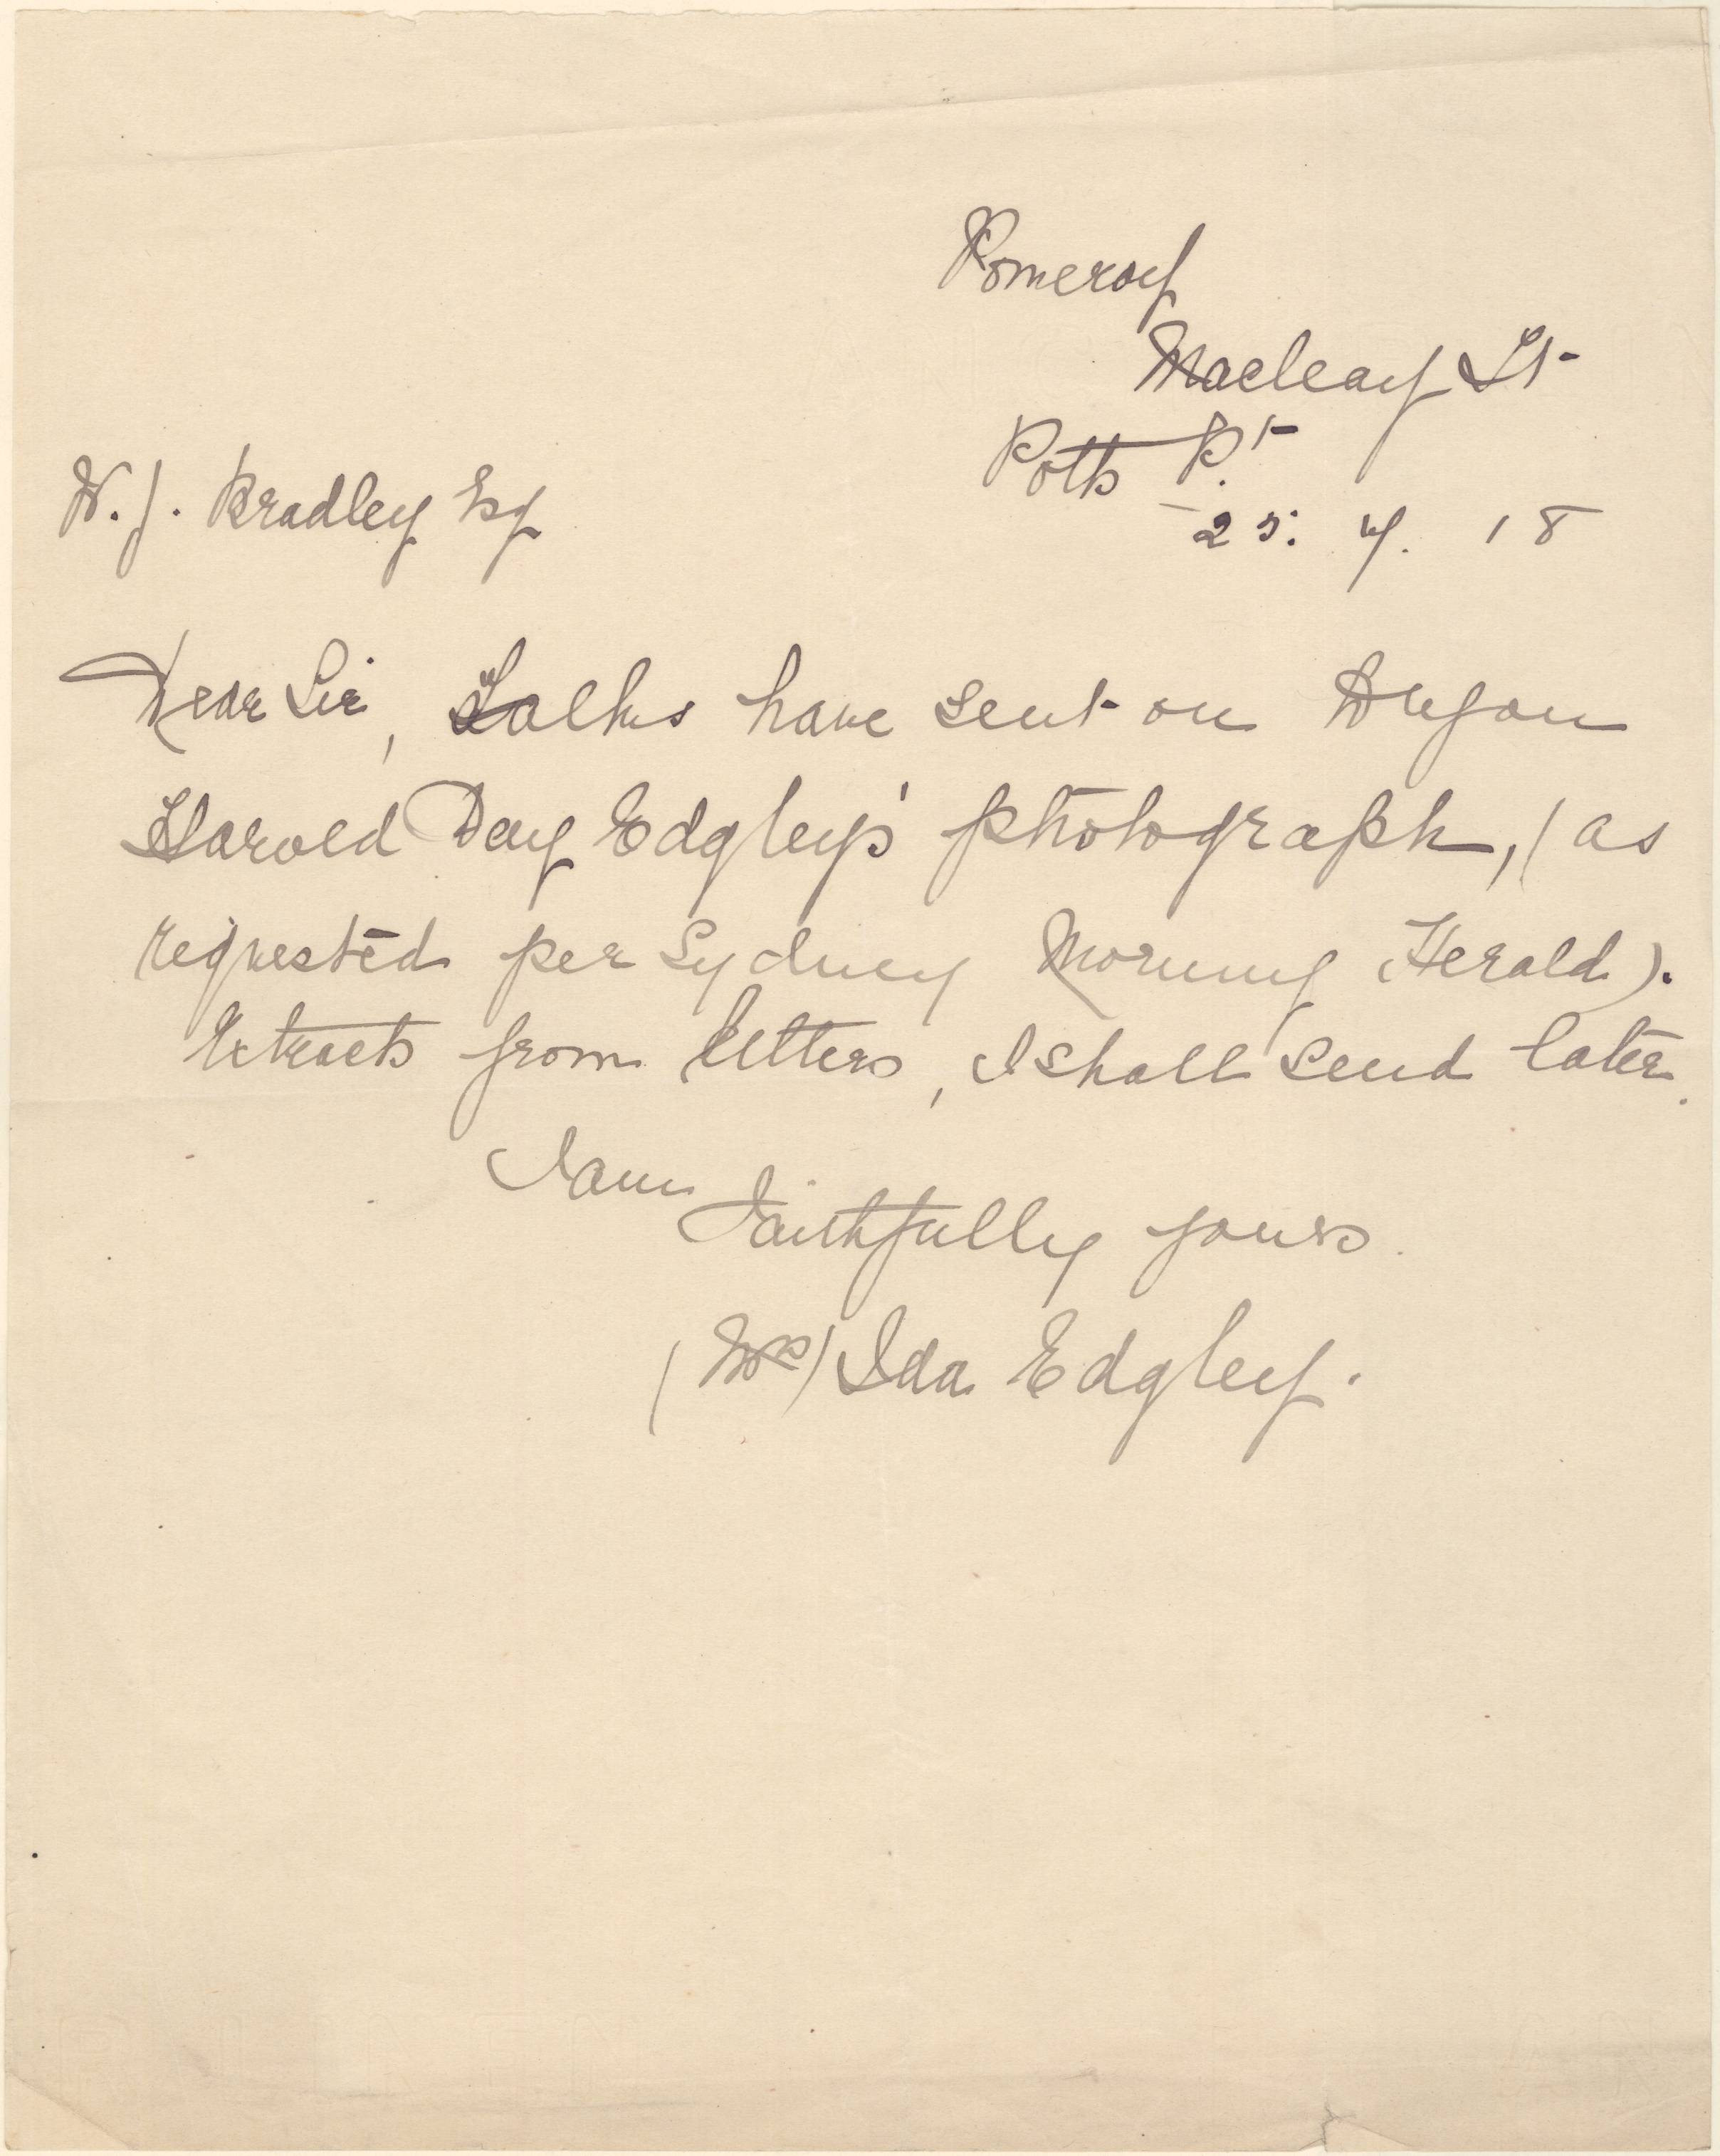 Pomeroy
Macleay St
Potts Pt.
25. 4. 18
W. J. Bradley Esq
Dear Sir, Falks have sent on
Harold Day Edgley's photograph, (as
requested per Sydney Morning Herald).
Extracts from letters, I shall send later.
I am
Faithfully yours
(Mrs) Ida Edgley.